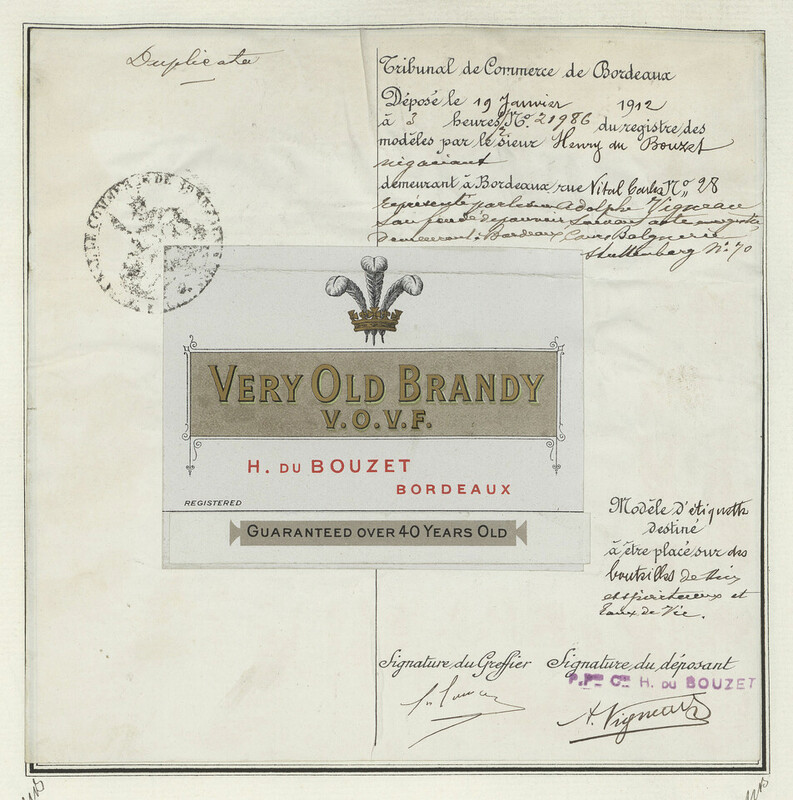 Duplicata
Tribunal de Commerce de Bordeaux
Déposé le 19 Janvier 1912
à 3 heures No. 21986 du registre des
modèles par le sieur Henry du Bouzet
négociant
demeurant à Bordeaux rue Vital Carles No. 28
Représenté par le sieur Adolphe Vigneau
son fondé de pouvoir suivant acte enregistré
demeurant à Bordeaux Cours Balguerie
Stuttenberg No. 70
VERY OLD BRANDY
V.O.V.F.
H. DU BOUZET
BORDEAUX
REGISTERED
GUARANTEED OVER 40 YEARS OLD
Modèle d'étiquette
destiné
à être placé sur des
bouteilles de vin
et spiritueux et
Eaux de Vie.
Signature du Greffier Signature du déposant
P. PON CTE H. DU BOUZET
A. Vigneau